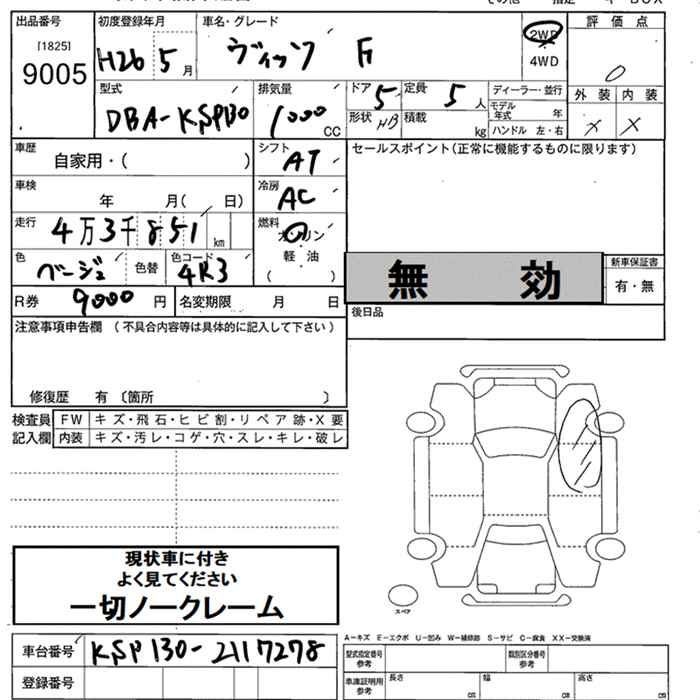 出品番号 初度登録年月 車名・グレード 2WD 評価点
[1825] 4WD
9005 H26 5月 ヴィッツ F 0
型式 排気量 ドア 定員 ディーラー・並行 外装 内装
DBA-KSP130 1000 CC 5 5人 モデル年式 年 X X
形状 HB 積載 kg ハンドル 左・右
車歴 シフト セールスポイント(正常に機能するものに限ります)
自家用・( ) AT
車検 冷房
年 月( 日) AC
走行 燃料
4万3千851km ガソリン
色 色コード 軽油 新車保証書
ベージュ 色替 4R3 ( ) 無効 有・無
R券 9000円 名変期限 月 日 後日品
注意事項申告欄 (不具合内容等は具体的に記入して下さい)
修復歴 有 〔箇所 〕
検査員 FW キズ・飛石・ヒビ割・リペア跡・X要
記入欄 内装 キズ・汚レ・コゲ・穴・スレ・キレ・破レ
現状車に付き
よく見てください
一切ノークレーム
スペア
A-キズ E-エクボ U-凹み W-補修跡 S-サビ C-腐食 XX-交換済
車台番号 KSP130-2117278 型式指定番号 参考 類別区分番号 参考
登録番号 車庫証明用 参考 長さ cm 幅 cm 高さ cm